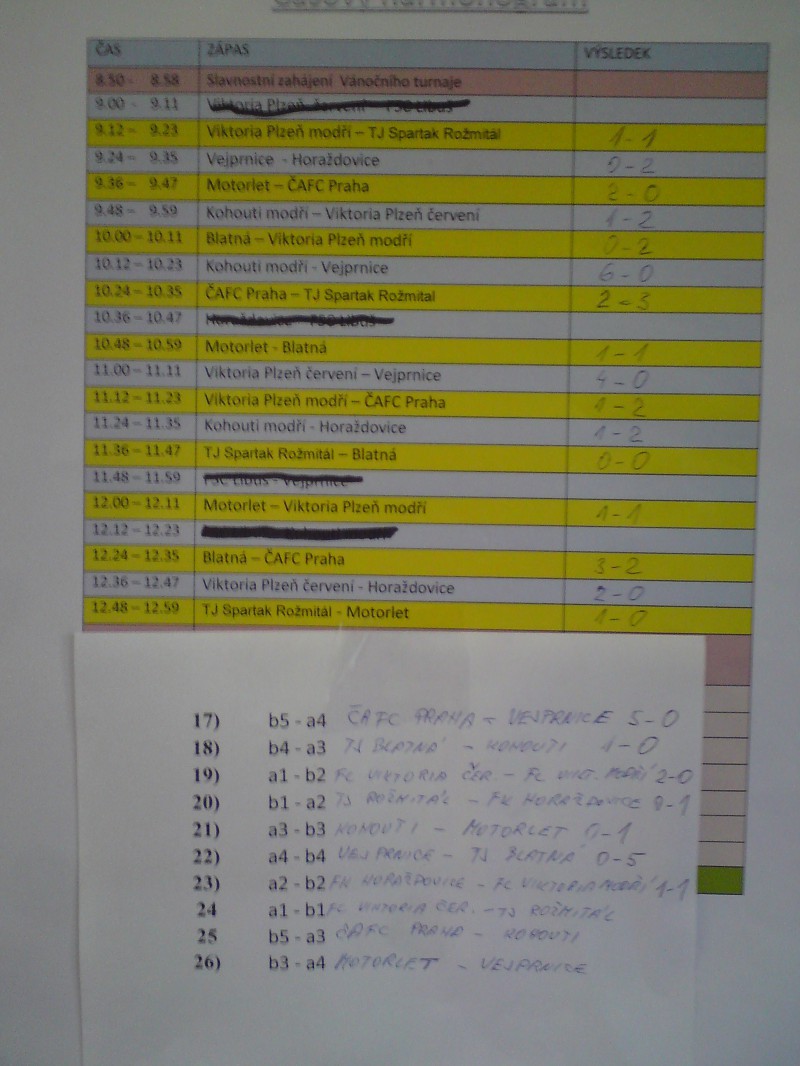 Časový harmonogram
ČAS ZÁPAS VÝSLEDEK
8.50 - 8.58 Slavnostní zahájení Vánočního turnaje
9.00 - 9.11 Viktoria Plzeň červení – FSC Libuš
9.12 – 9.23 Viktoria Plzeň modří – TJ Spartak Rožmitál 1-1
9.24 – 9.35 Vejprnice - Horaždovice 0-2
9.36 – 9.47 Motorlet – ČAFC Praha 2-0
9.48 – 9.59 Kohouti modří – Viktoria Plzeň červení 1-2
10.00 – 10.11 Blatná – Viktoria Plzeň modří 0-2
10.12 – 10.23 Kohouti modří - Vejprnice 6-0
10.24 – 10.35 ČAFC Praha – TJ Spartak Rožmital 2-3
10.36 – 10.47 Horaždovice - FSC Libuš
10.48 – 10.59 Motorlet - Blatná 1-1
11.00 – 11.11 Viktoria Plzeň červení – Vejprnice 4-0
11.12 – 11.23 Viktoria Plzeň modří – ČAFC Praha 1-2
11.24 – 11.35 Kohouti modří - Horaždovice 1-2
11.36 – 11.47 TJ Spartak Rožmitál – Blatná 0-0
11.48 – 11.59 FSC Libuš - Vejprnice
12.00 – 12.11 Motorlet – Viktoria Plzeň modří 1-1
12.12 – 12.23
12.24 – 12.35 Blatná – ČAFC Praha 3-2
12.36 – 12.47 Viktoria Plzeň červení - Horaždovice 2-0
12.48 – 12.59 TJ Spartak Rožmitál - Motorlet 1-0
17) b5 - a4 ČAFC PRAHA - VEJPRNICE 5-0
18) b4 - a3 TJ BLATNÁ - KOHOUTI 1-0
19) a1 - b2 FC VIKTORIA ČER. - FC VIKT. MODŘÍ 2-0
20) b1 - a2 TJ ROŽMITÁL - FK HORAŽDOVICE 0-1
21) a3 - b3 KOHOUTI - MOTORLET 0-1
22) a4 - b4 VEJPRNICE - TJ BLATNÁ 0-5
23) a2 - b2 FK HORAŽDOVICE - FC VIKTORIA MODŘÍ 1-1
24 a1 - b1 FC VIKTORIA ČER. - TJ ROŽMITÁL
25 b5 - a3 ČAFC PRAHA - KOHOUTI
26) b3 - a4 MOTORLET - VEJPRNICE